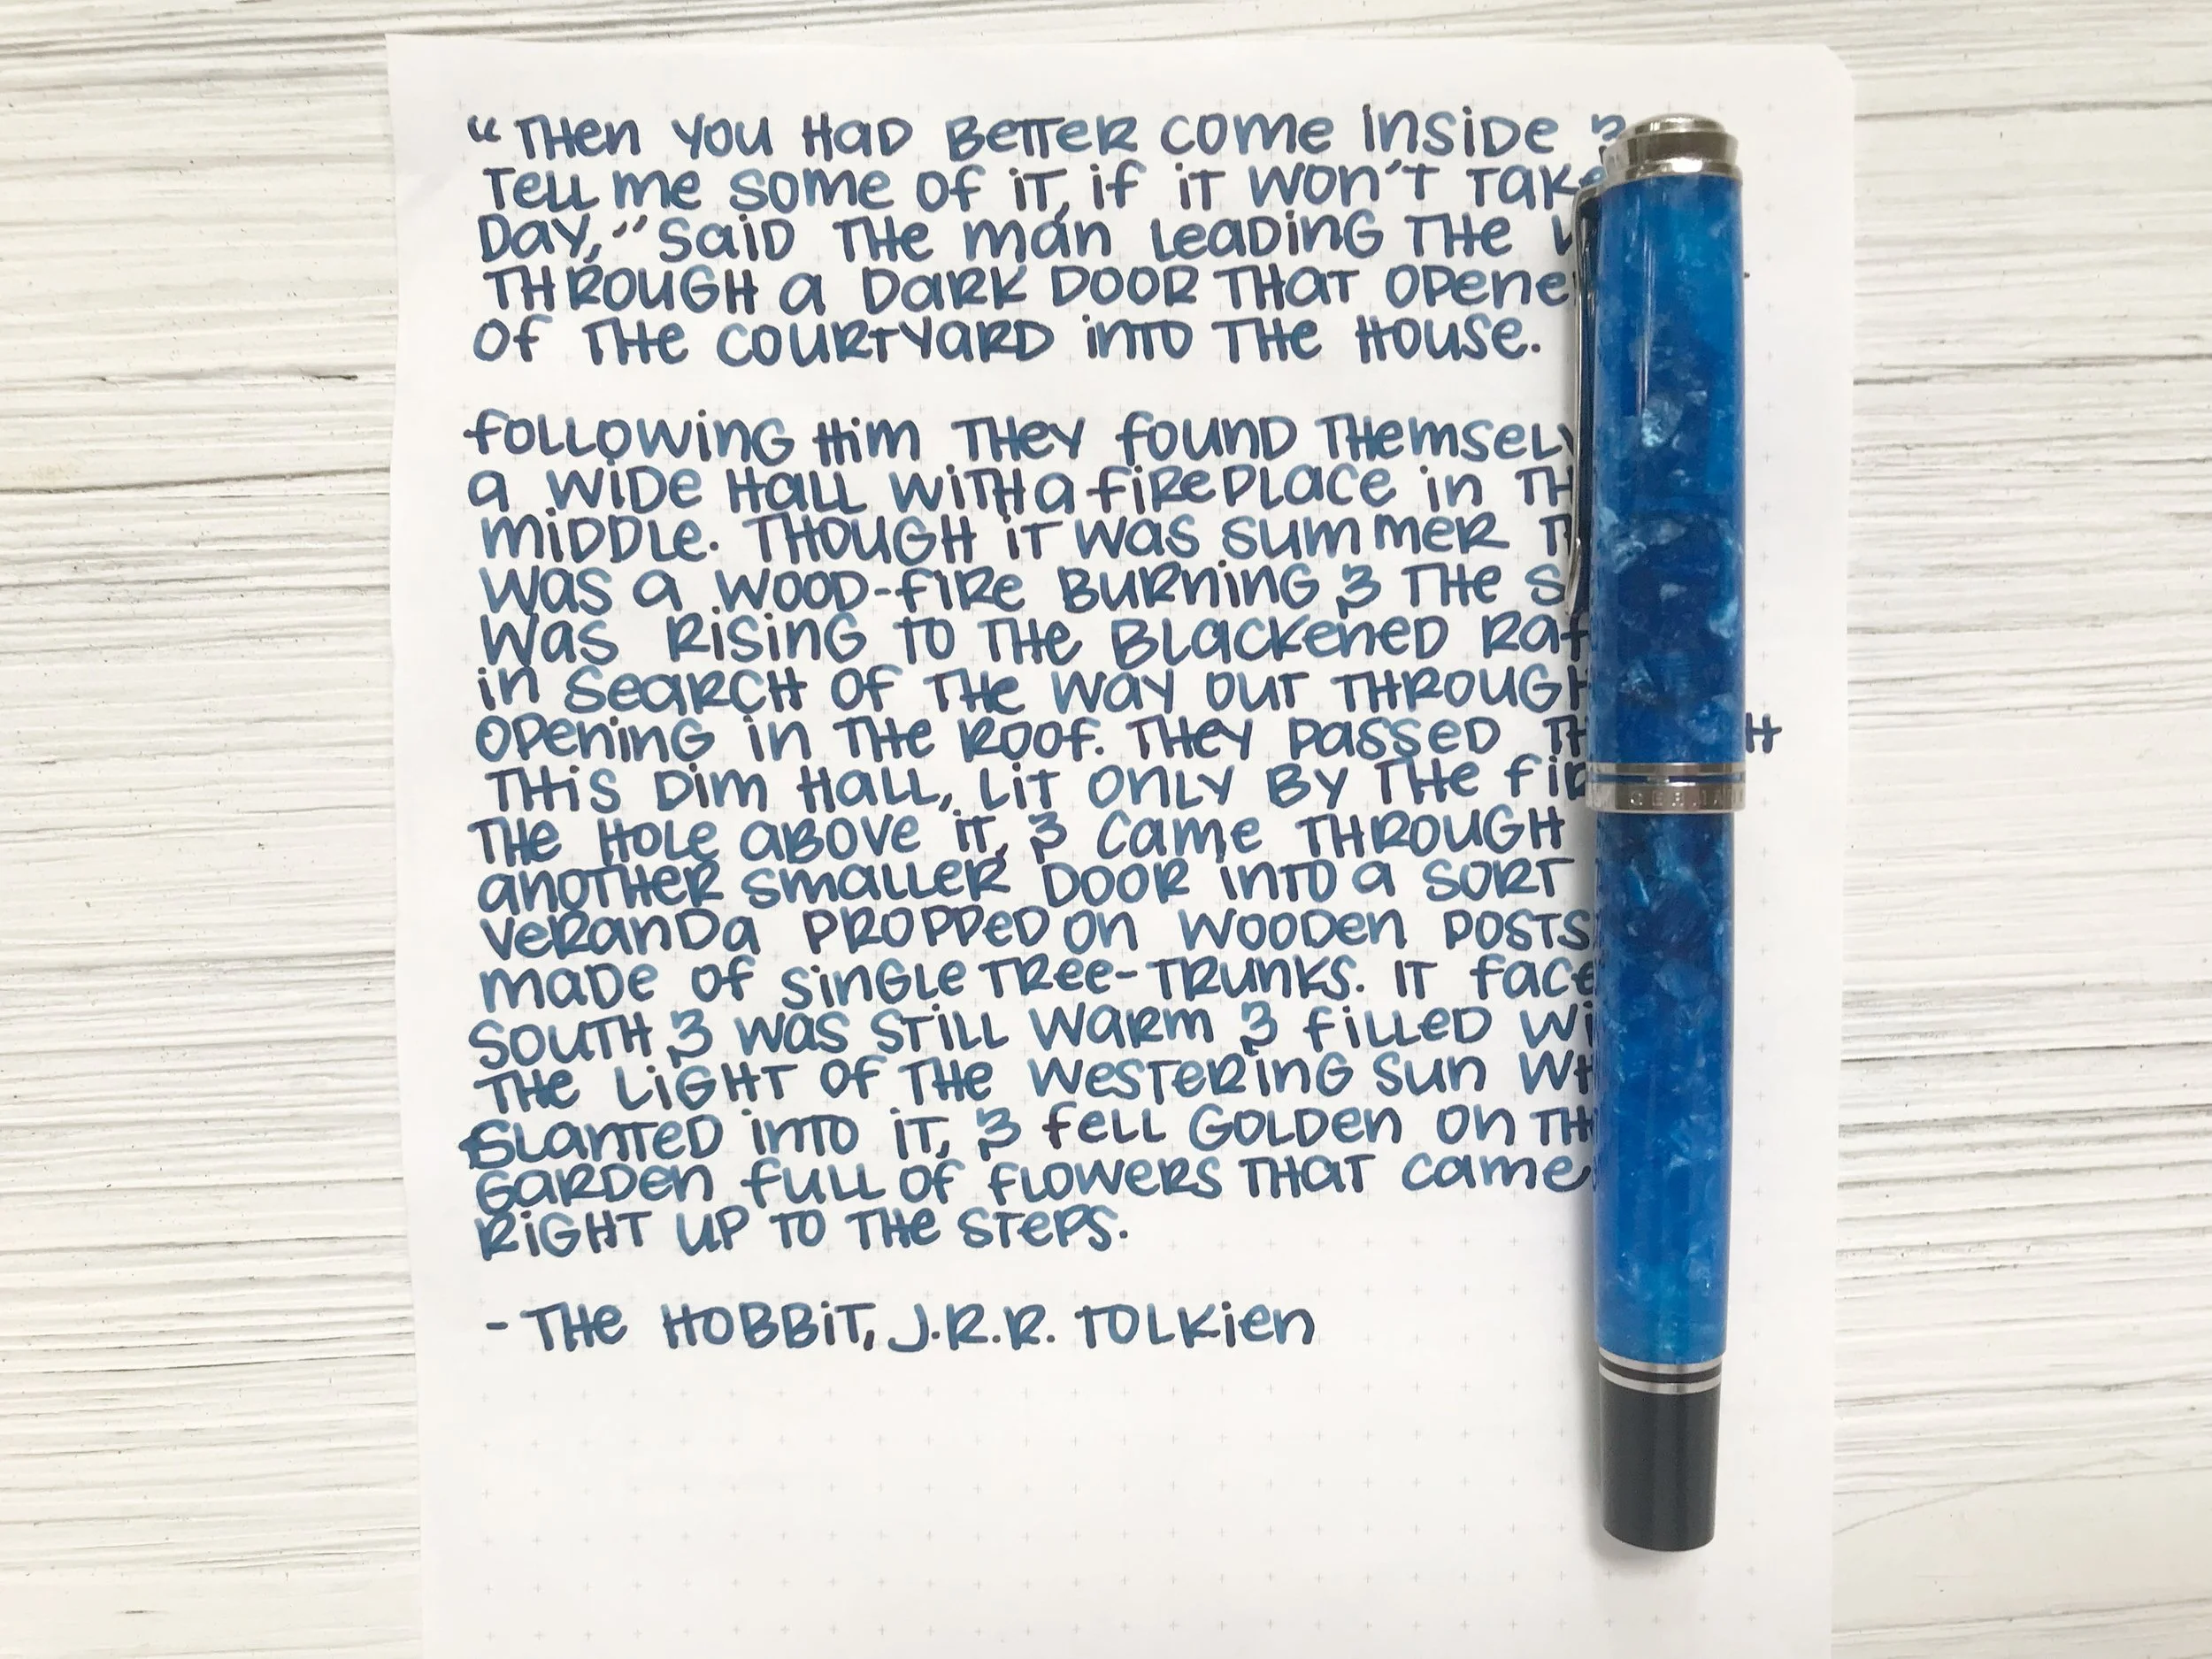 "Then you had better come inside &
tell me some of it, if it won't take
day," said the man leading the
through a dark door that opened
of the courtyard into the house.
Following him they found themselves
a wide hall with a fireplace in the
middle. Though it was summer
was a wood-fire burning & the
was rising to the blackened
in search of the way out through
opening in the roof. They passed through
this dim hall, lit only by the
the hole above it, & came through
another smaller door into a sort
veranda propped on wooden posts
made of single tree-trunks. It faced
south & was still warm & filled
the light of the westering sun
slanted into it, & fell golden on the
garden full of flowers that came
right up to the steps.
- The Hobbit, J.R.R. Tolkien